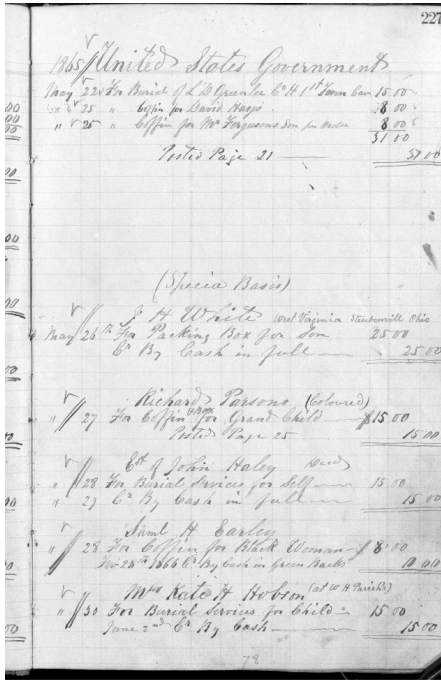 227
1865 United States Government
May 22 For Burial of L D Greenlee Co H 1st Tenn Cav 15.00
" 25 " Coffin for David Hays 8.00
" " 25 " Coffin for Mr Fergusons Son per Order 8 00
31 00
Posted Page 21 31 00
(Specia Basis)
J H White West Virginia Steubenville Ohio
May 26th For Packing Box for Son 25 00
Cr By Cash in full 25 00
Richard Parsons (Coloured)
" 27 For Coffin & Box for Grand Child $15.00
Posted Page 25 15 00
Est of John Haley Decd
" 28 For Burial Services for Self 15.00
" 29 Cr By Cash in full 15 00
Saml H Earley
" 28 For Coffin for Black Woman $ 8.00
28th 1866 Cr By Cash in Green Backs 10 00
Mrs Kate H Hobson (at W H Parish's)
" 30 For Burial Services for Child 15 00
June 2nd Cr By Cash 15 00
78